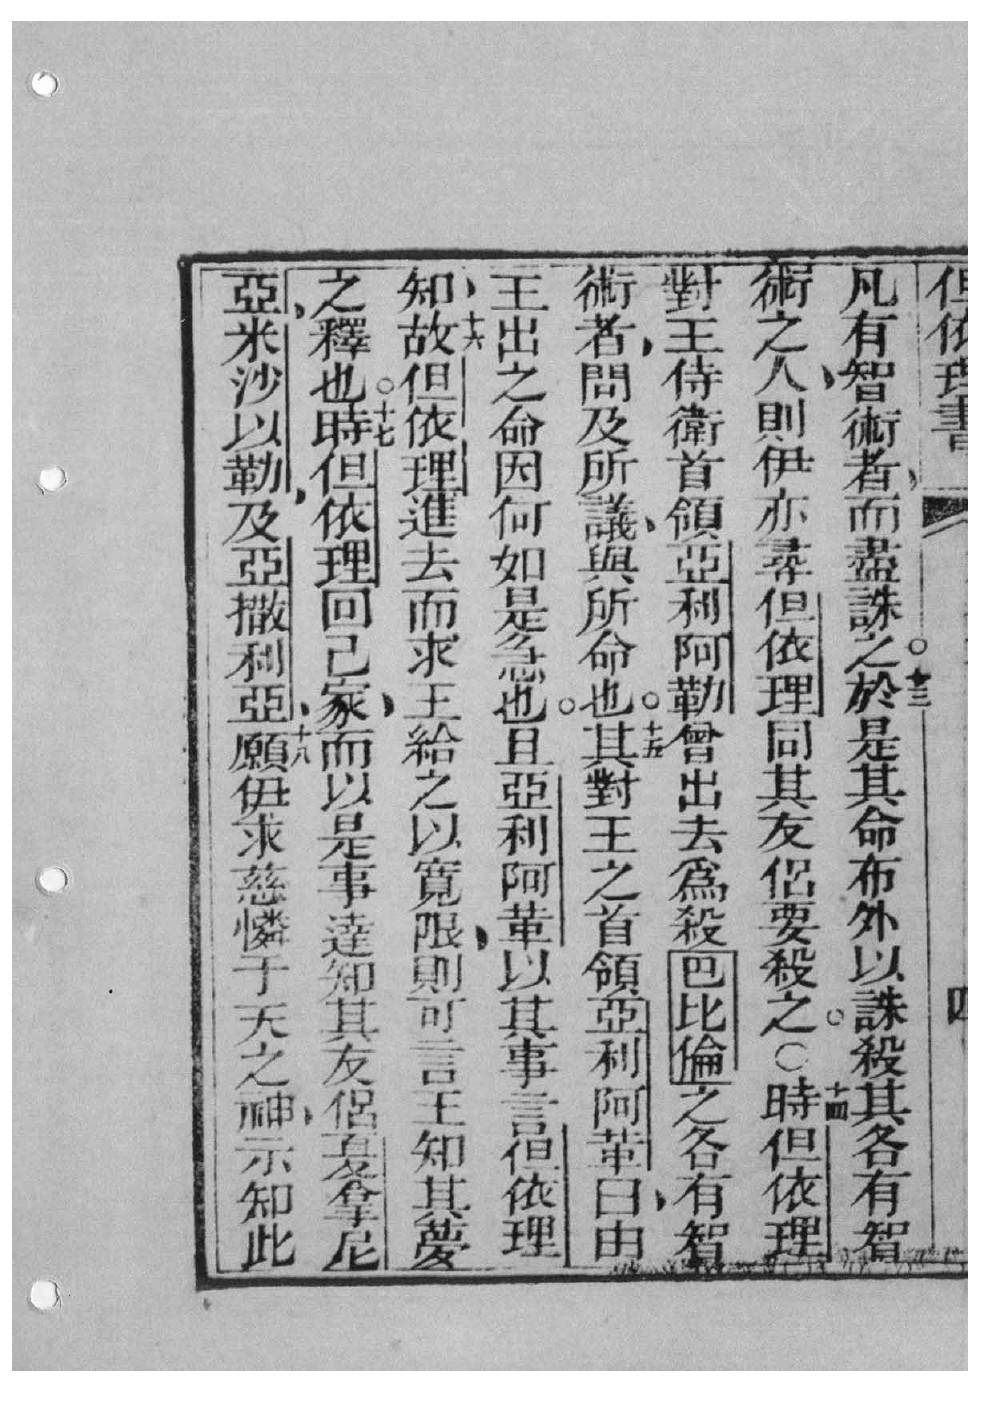 但依理書 四
凡有智術者、而盡誅之。十三於是其命布外以誅殺其各有智
術之人、則伊亦尋但依理同其友侶要殺之。○十四時但依理
對王侍衛首領亞利阿勒曾出去爲殺巴比倫之各有智
術者、問及所議、與所命也。十五其對王之首領亞利阿革曰、由
王出之命因何如是急也。且亞利阿革以其事言但依理
知、十六故但依理進去而求王給之以寬限、則可言王知其夢
之釋也。十七時但依理回己家、而以是事達知其友侶夏拿尼
亞、米沙以勒、及亞撒利亞、十八願伊求慈憐于天之神、示知此